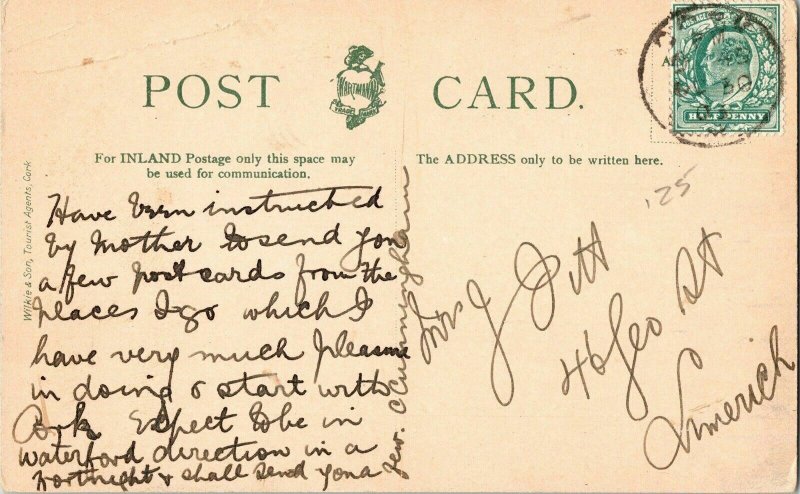 POST CARD.
HARTMANN
TRADE MARK
For INLAND Postage only this space may
be used for communication.
The ADDRESS only to be written here.
HALFPENNY
Wilkie & Son, Tourist Agents, Cork
Have been instructed
by Mother to send you
a few post cards from the
places I go which I
have very much pleasure
in doing & start with
Cork Expect to be in
Waterford direction in a
Fortnight & shall send you a
few. C Cunningham
'25
Mrs J Pitt
46 Geo St
Limerick